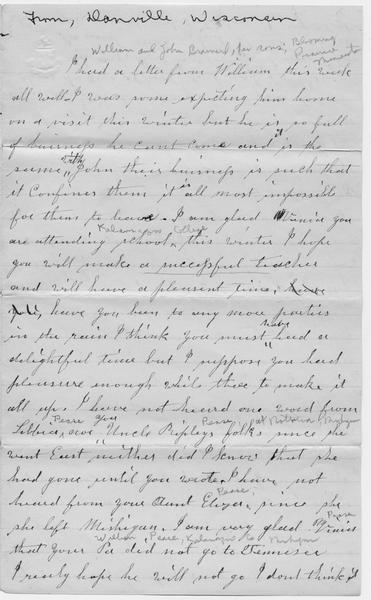 From, Danville, Wisconsin
William and John Brainerd, her sons, Blooming
Prairie
Minnesota
I had a letter from William this week
all well. I was some expecting him home
on a visit this winter but he is so full
of buisness he cant come and is the
with
same John their buisness is such that
it confines them it is all most impossible
for them to leave. I am glad you
Kalamazoo College
are attending school this winter I hope
you will make a successful teacher
and will have a pleasant time,
have you been to any more parties
have
in the rain I think you must had a
delightful time but I suppose you had
pleasure enough while there to make it
all up. I have not heard one word from
Pease
Pease, at Michigan
Libbie, nor Uncle Ripley folks since she
went East neither did I know that she
had gone until you wrote. I have not
Pease,
heard from your Aunt Eliza, since she
Pease
she left Michigan. I am very glad
that your Pa did not go to Tennessee
William Pease, Kalamazoo Co Michigan
I realy hope he will not go I dont think it